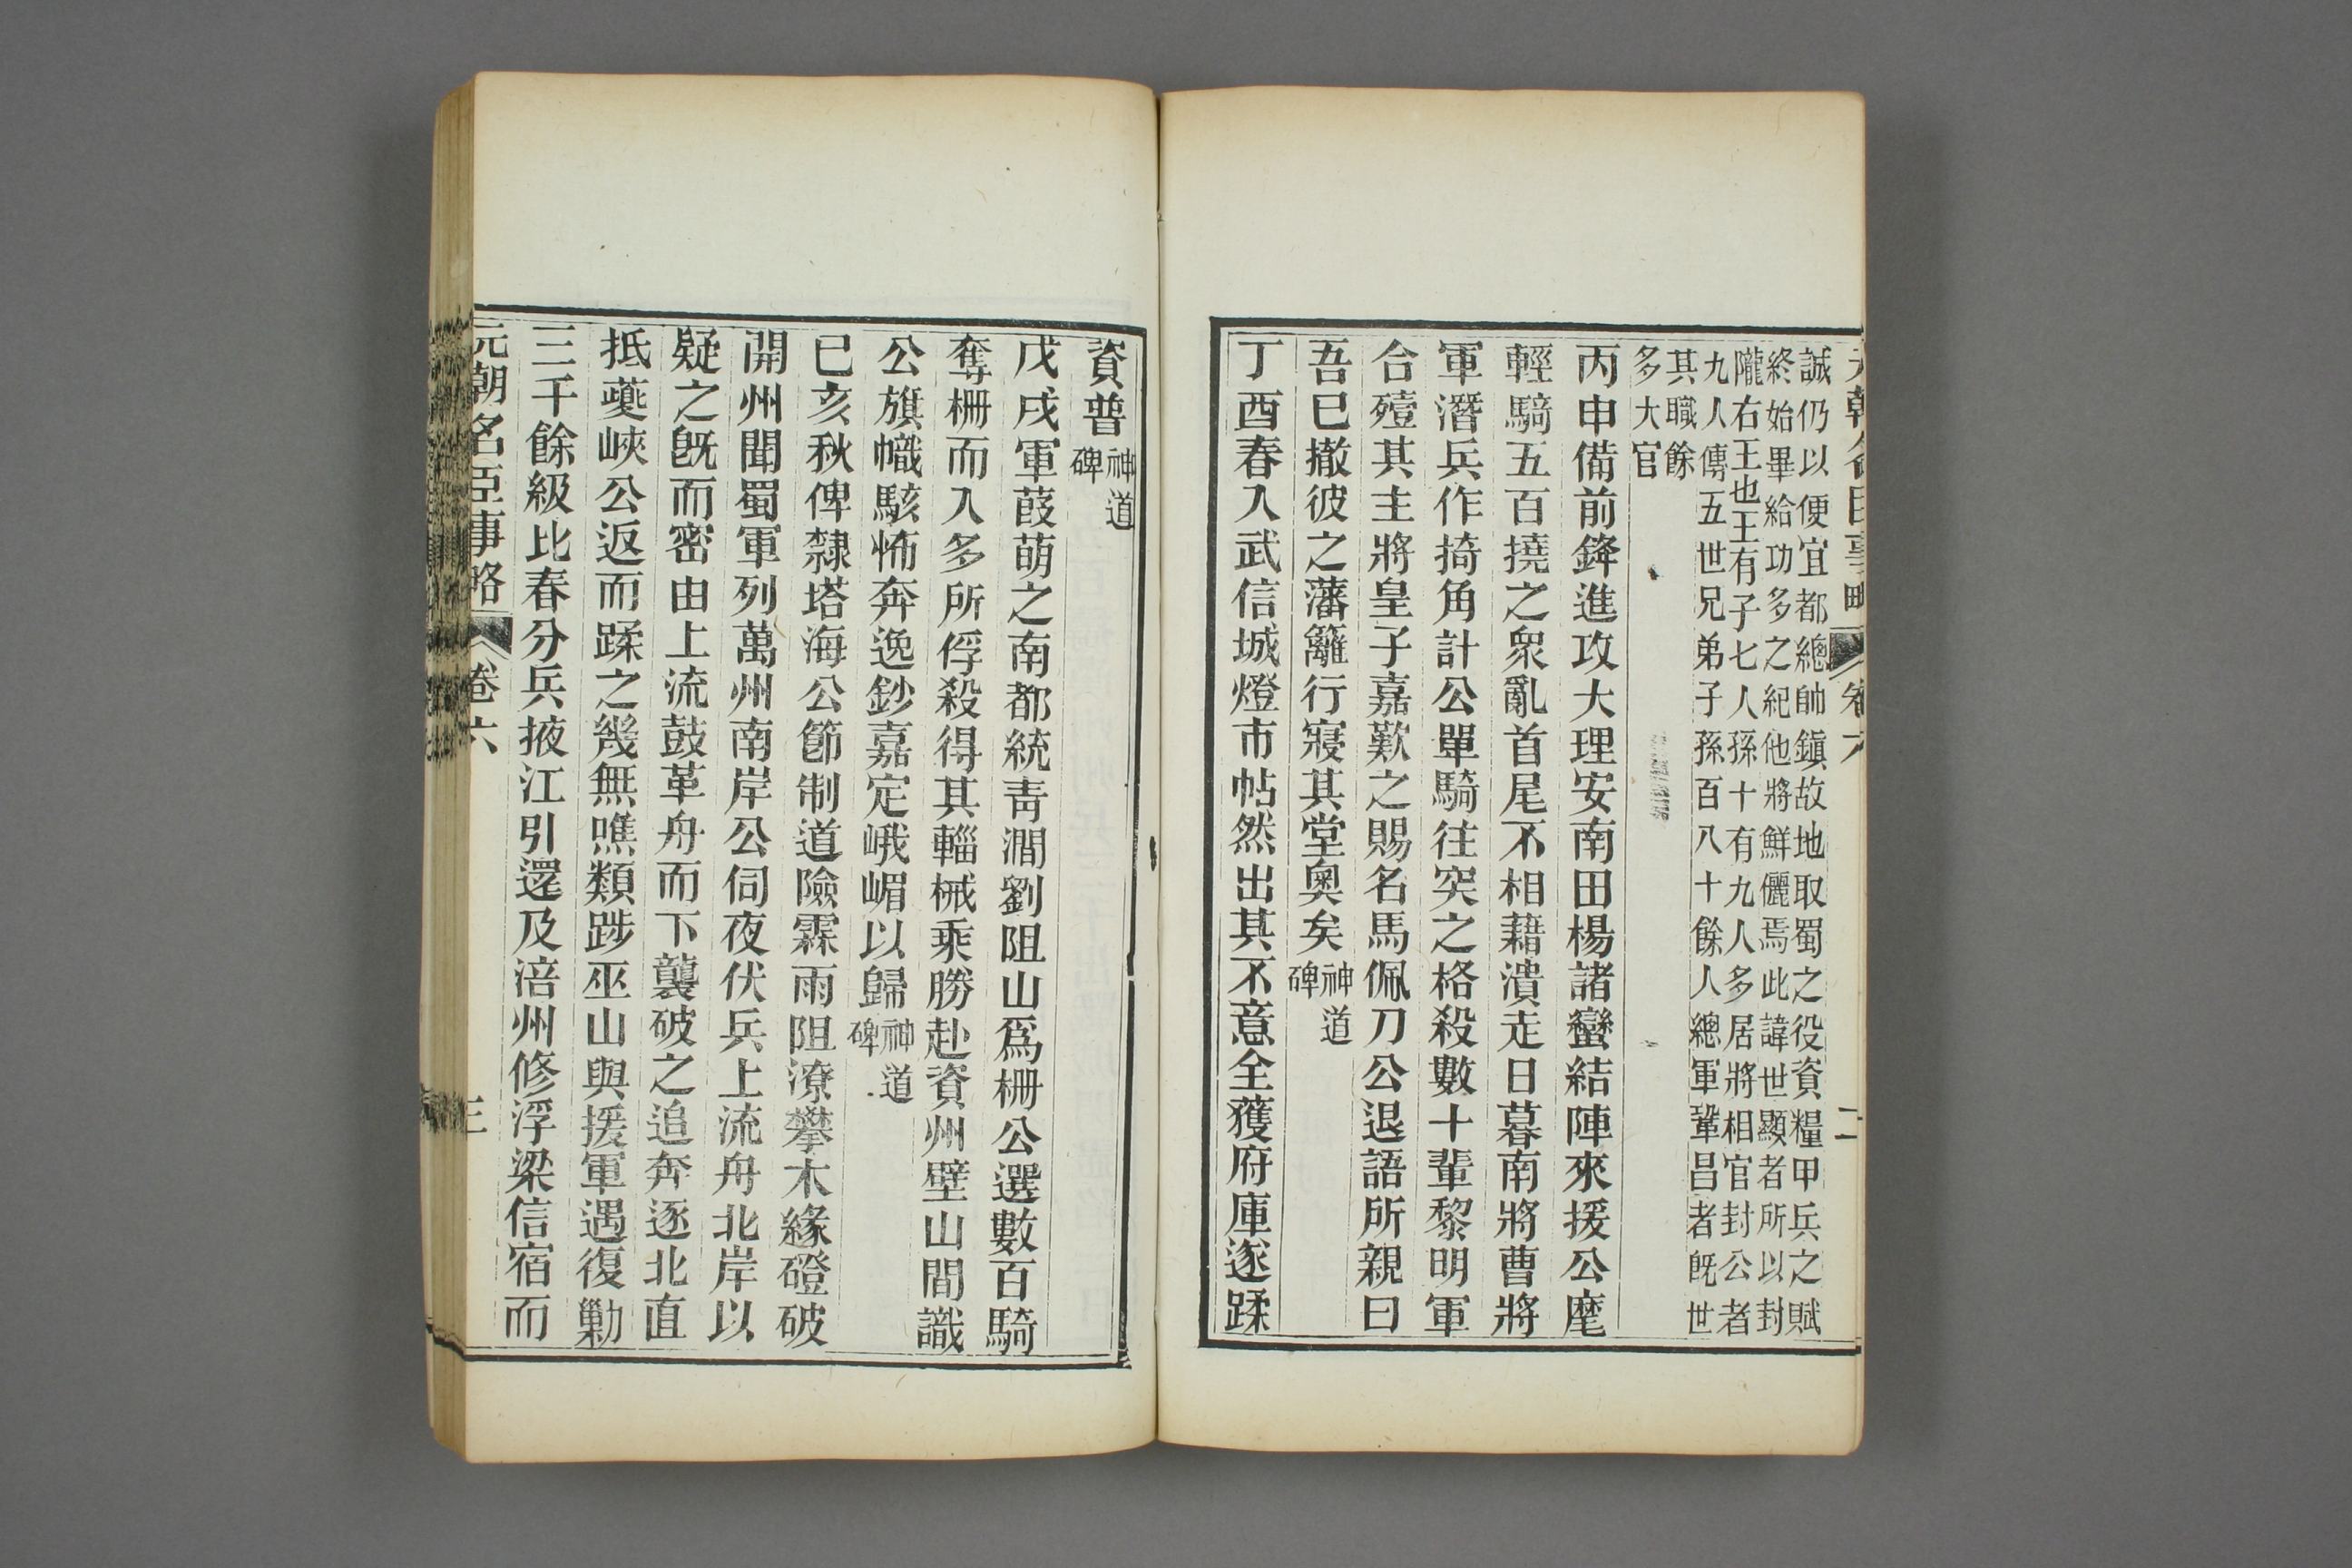 元朝名臣事略 卷六 二
誠仍以便宜都總帥鎭故地取蜀之役資糧甲兵之賦
終始畢給功多之紀他將鮮儷焉此諱世顯者所以封
隴右王也王有子七人孫十有九人多居將相官封公者
九人傳五世兄弟子孫百八十餘人總軍鞏昌者旣世
其職餘
多大官
丙申備前鋒進攻大理安南田楊諸蠻結陣來援公麾
輕騎五百撓之衆亂首尾不相藉潰走日暮南將曹將
軍潛兵作掎角計公單騎往突之格殺數十輩黎明軍
合殪其主將皇子嘉歎之賜名馬佩刀公退語所親曰
吾巳撤彼之藩籬行寢其堂奧矣神道碑
丁酉春入武信城燈市帖然出其不意全獲府庫遂蹂
資普神道碑
戊戌軍葭萌之南都統靑澗劉阻山爲柵公選數百騎
奪柵而入多所俘殺得其輜械乘勝赴資州壁山間識
公旗幟駭怖奔逸鈔嘉定峨嵋以歸神道碑
巳亥秋俾隸塔海公節制道險霖雨阻潦攀木緣磴破
開州聞蜀軍列萬州南岸公伺夜伏兵上流舟北岸以
疑之旣而密由上流鼓革舟而下襲破之追奔逐北直
抵夔峽公返而蹂之幾無噍類踄巫山與援軍遇復勦
三千餘級比春分兵掖江引還及涪州修浮梁信宿而
元朝名臣事略 卷六 三